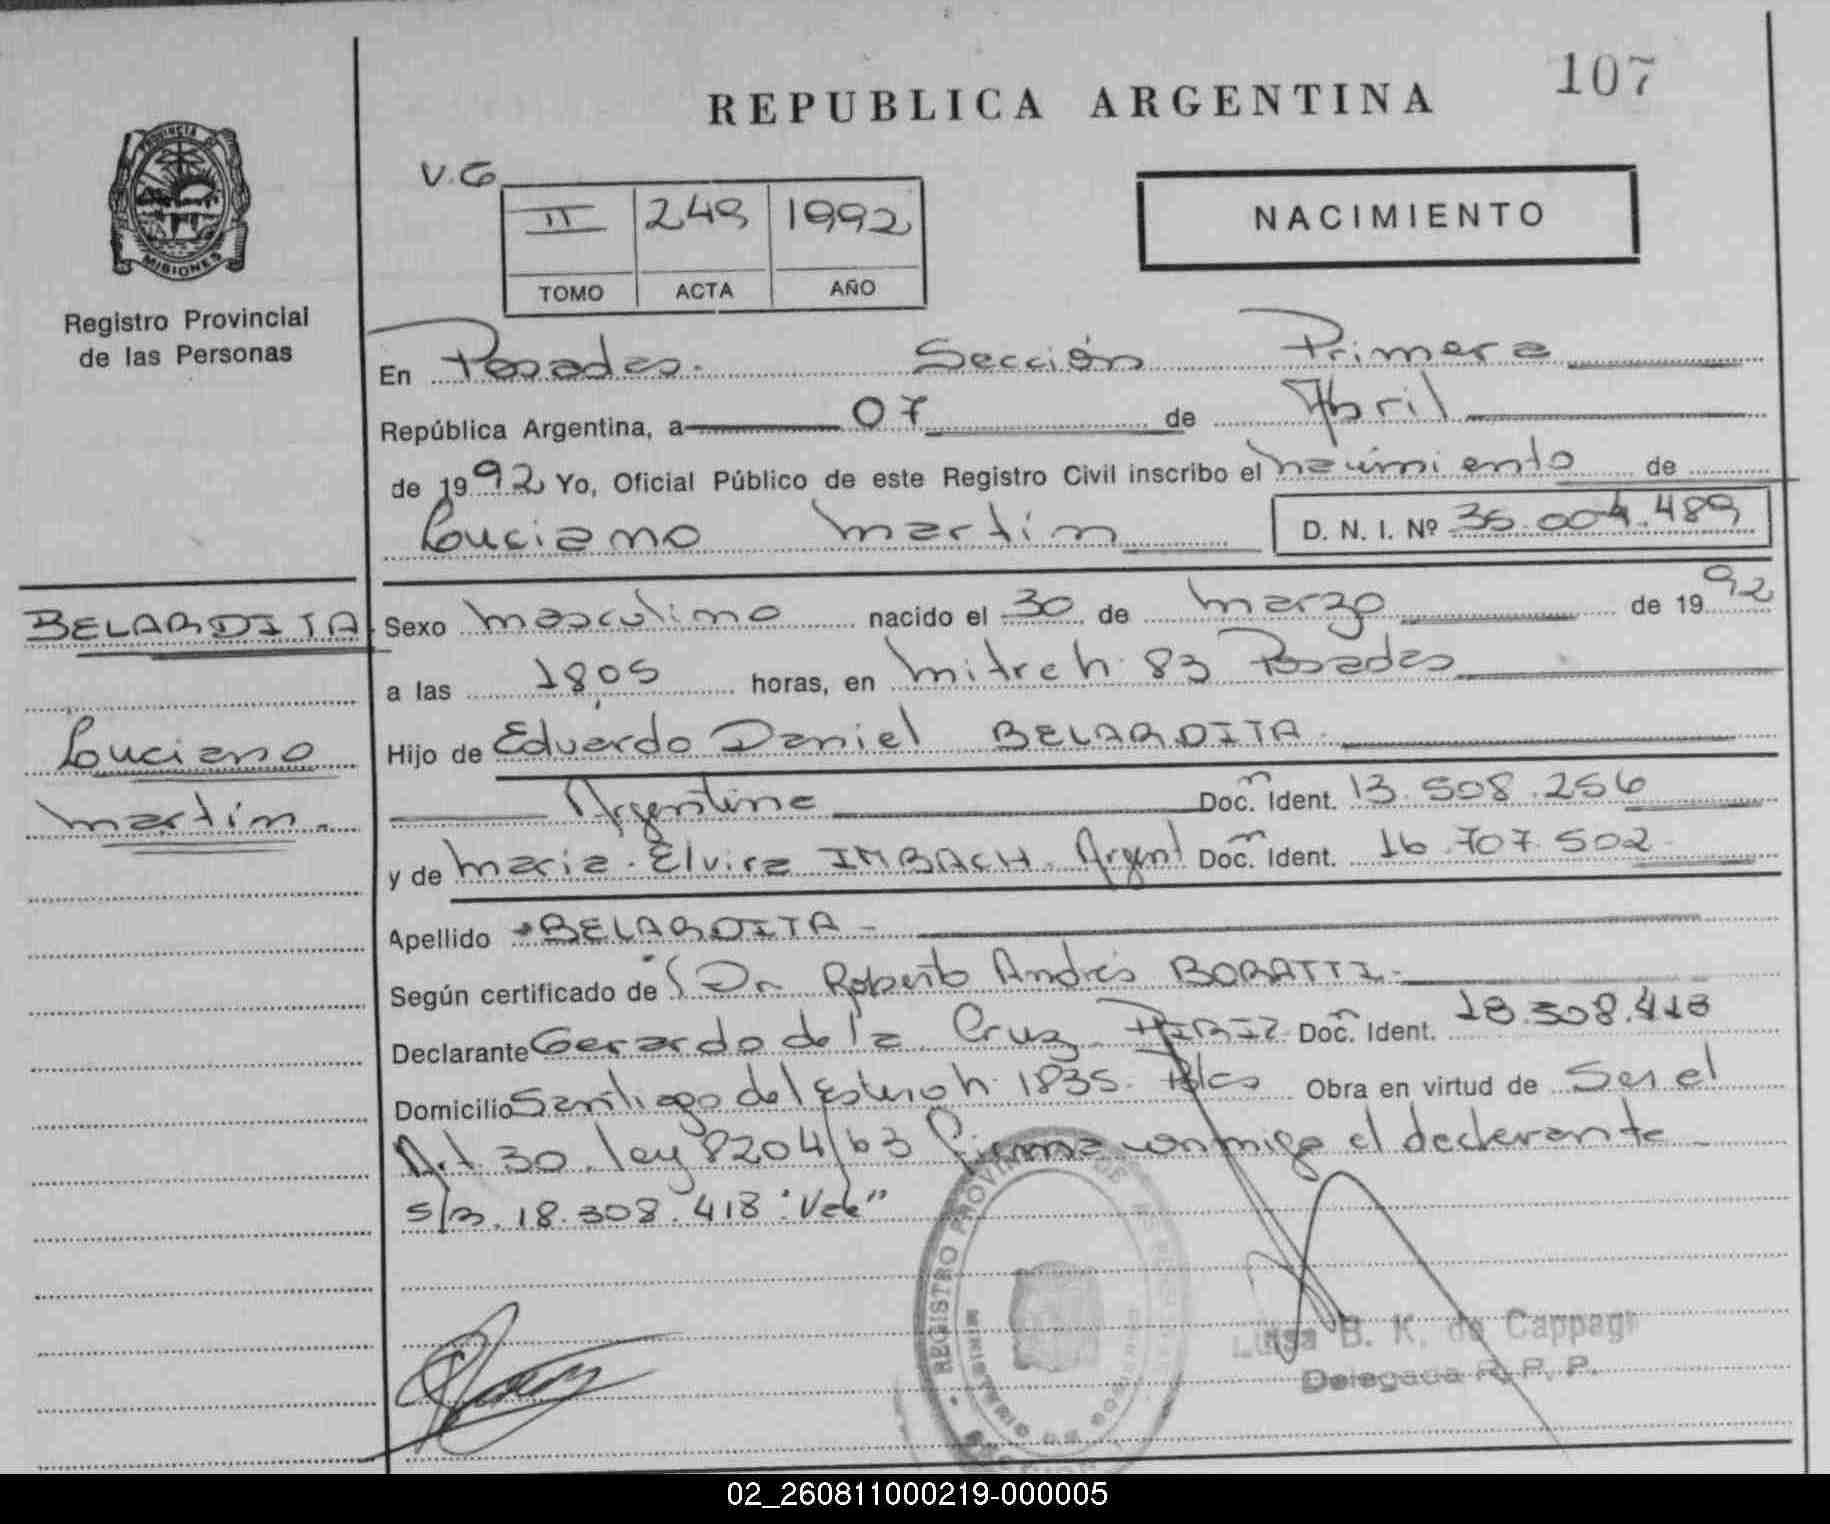 107
REPUBLICA ARGENTINA
V.G
II 249 1992
TOMO ACTA AÑO
NACIMIENTO
PROVINCIA DE
MISIONES
Registro Provincial
de las Personas
En Posadas. Sección Primera
República Argentina, a 07 de Abril
de 1992 Yo, Oficial Público de este Registro Civil inscribo el nacimiento de
Luciano Martín D. N. I. Nº 36.004.489
BELARDITA
Luciano
Martín.
Sexo Masculino nacido el 30 de Marzo de 1992
a las 18,05 horas, en Mitre h. 83 Posadas
Hijo de Eduardo Daniel BELARDITA.
Argentino Doc. Ident. 13.508.256
y de Maria Elvira IMBACH. Argent Doc. Ident. 16.707.502
Apellido BELARDITA -
Según certificado de Dr Roberto Andrés BORATTI.
Declarante Gerardo de la Cruz Doc. Ident. 18.308.418
Domicilio Santiago del Estero h. 1835. Pdas Obra en virtud de Ser el
Art. 30 ley 8204/63 Firma conmigo el declarante
s/r. 18.308.418 "Vale"
REGISTRO PROVINCIAL DE
MINISTERIO DE GOBIERNO
Luisa B. K. de
Delegada R. P. P.
02_260811000219-000005